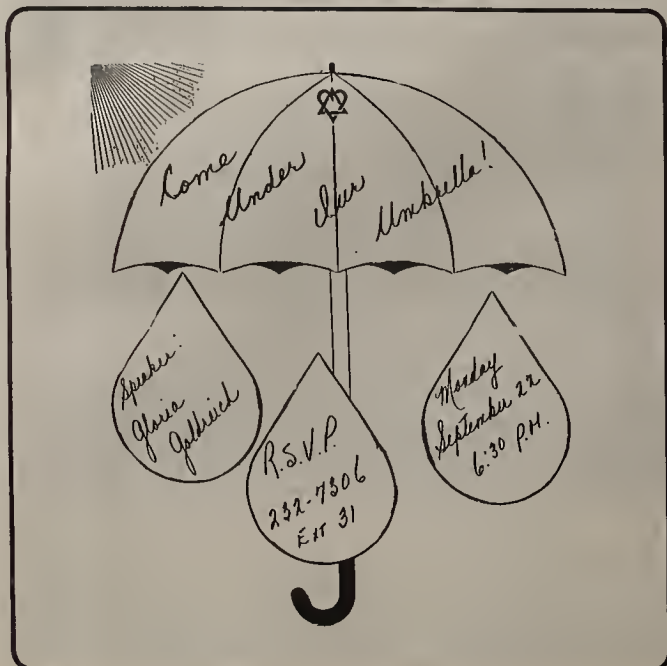 Come Under Our Umbrella!
Speaker:
Gloria
Goldreich
R.S.V.P.
232-7306
Ext 31
Monday
September 22
6:30 P.M.